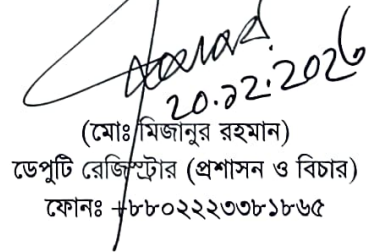 (মোঃ মিজানুর রহমান)
ডেপুটি রেজিস্ট্রার (প্রশাসন ও বিচার)
ফোনঃ +৮৮০২২২৩৩৮১৮৬৫